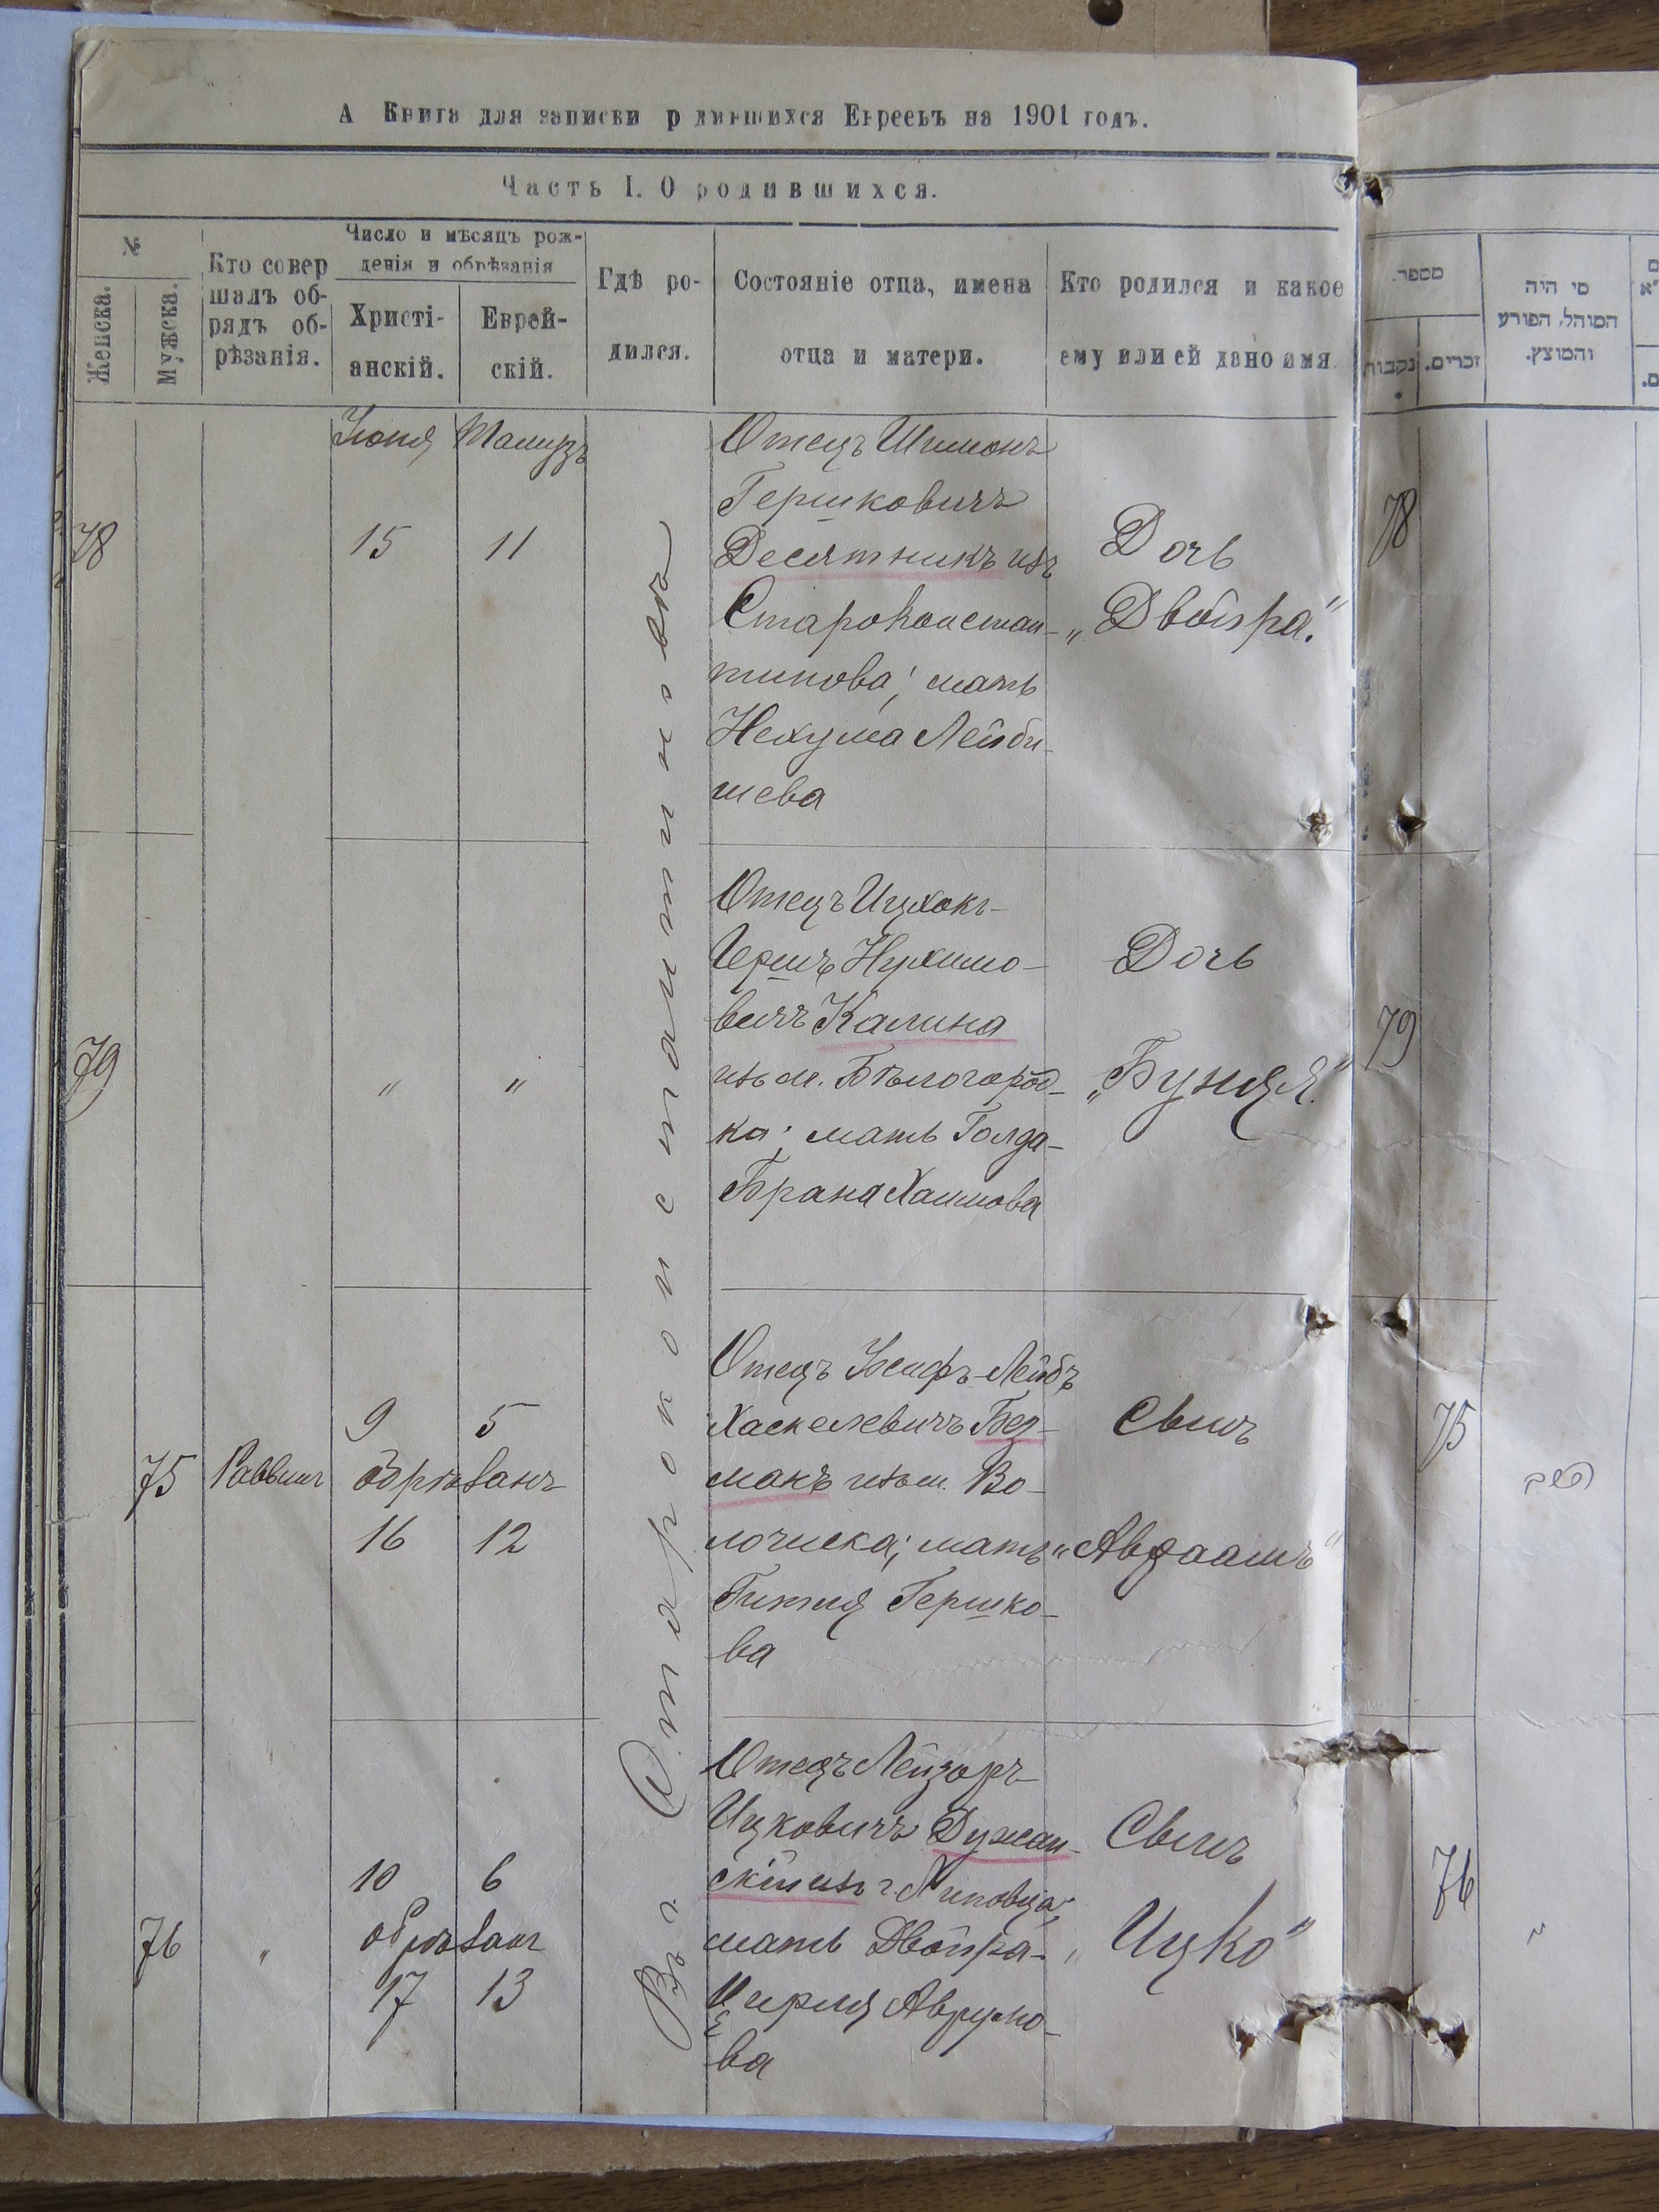 А Книга для записки р дившихся Евреевъ на 1901 годъ.
Часть I. О родившихся.
№
Женска.
Мужска.
Кто совер
шалъ об-
рядъ об-
рѣзанія.
Число и мѣсяцъ рож-
денія и обрѣзанія
Христі-
анскій.
Еврей-
скій.
Гдѣ ро-
дился.
Состояніе отца, имена
отца и матери.
Кто родился и какое
ему или ей дано имя.
מספר.
נקבות
זכרים.
מי היה
המוהל, הפורע
והמוצץ.
Іюня Тамузъ
78
15 11
Отецъ Шимонъ
Гершковичъ
Десятникъ изъ
Староконстан-
тинова; мать
Нехума Лейби-
шева
Дочь
„Двойра."
78
Въ г. Староконстантиновъ
79
" "
Отецъ Ицхокъ-
Гершъ Нухимо-
вичъ Калина
изъ м. Бѣлогород-
ка; мать Голда-
Брана Хаимова
Дочь
„Бунця."
79
75 Раввинъ
9 5
обрѣзанъ
16 12
Отецъ Іосифъ-Лейбъ
Хаскелевичъ Без-
макъ изъ м. Во-
лочиска; мать
Гитля Гершко-
ва
Сынъ
„Авраамъ"
75
76 "
10 6
обрѣзанъ
17 13
Отецъ Лейзоръ
Ицковичъ Дужан-
скій изъ г. Липовца;
мать Двойра-
Перля Аврумо-
ва
Сынъ
„Ицко"
76
"